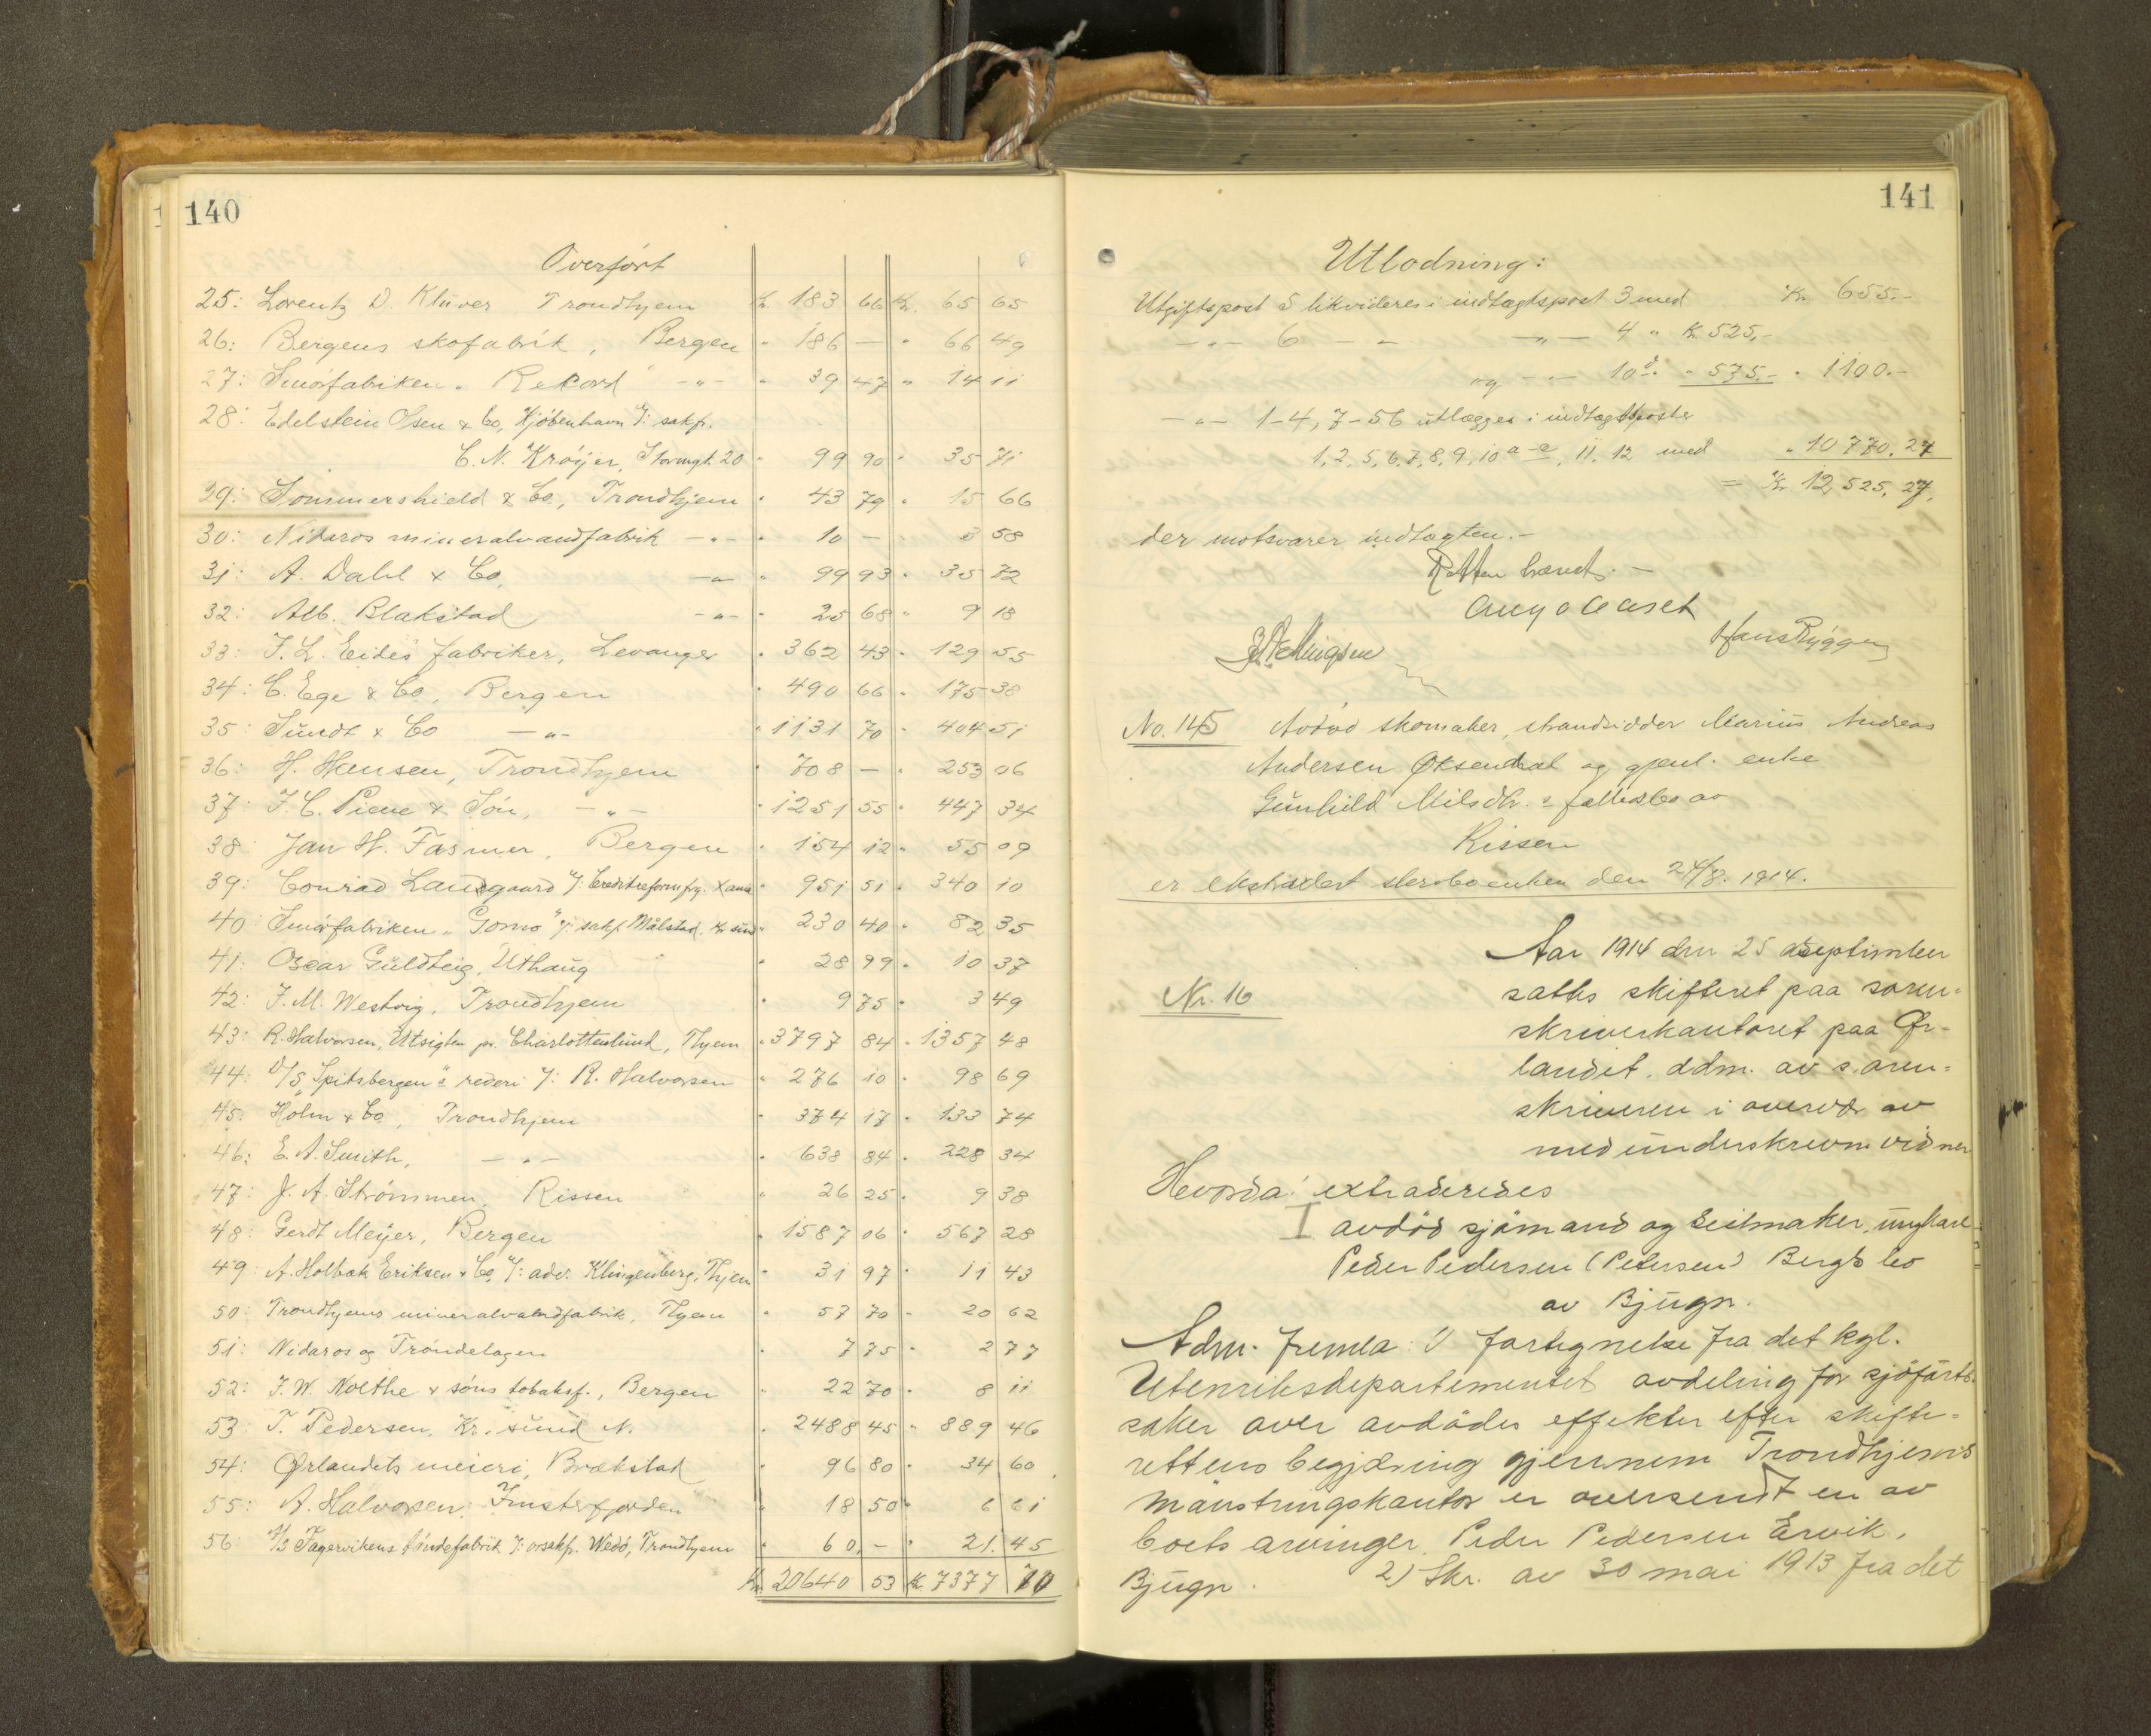 140
Overført
25: Lorentz D. Klüver Trondhjem Kr. 183 66 Kr. 65 65
26: Bergens skofabrik, Bergen " 186 — " 66 49
27: Smørfabriken "Rekord" -"- " 39 47 " 14 11
28: Edelstein Olsen & Co, Kjøbenhavn v/: sakf.
C. N. Krøÿer, Stormgt. 20 " 99 90 " 35 71
29: Sommershield & Co, Trondhjem " 43 79 " 15 66
30: Nidaros mineralvandfabrik -"- " 10 — " 3 58
31: A. Dahl & Co, -"- " 99 93 " 35 72
32: Alb. Blakstad -"- " 25 68 " 9 18
33: J. L. Eides fabriker, Levanger " 362 43 " 129 55
34: C. Ege & Co, Bergen " 490 66 " 175 38
35: Sundt & Co -"- " 1131 70 " 404 51
36: H. Hansen, Trondhjem " 708 — " 253 06
37: J. C. Piene & Søn, -"- " 1251 55 " 447 34
38: Jan H. Fasmer, Bergen " 154 12 " 55 09
39: Conrad Langaard v/: Creditreformfrg. X ania " 951 51 " 340 10
40: Smørfabriken "Gomo" v/: sakf. Målstad, Kr sund " 230 40 " 82 35
41: Oscar Guldteig, Uthaug " 28 99 " 10 37
42: J. M. Westvig, Trondhjem " 9 75 " 3 49
43: R. Halvorsen, Utsigten pr. Charlottenlund, Thjem " 3797 84 " 1357 48
44: D/S "Spitsbergen"s rederi v/: R. Halvorsen " 276 10 " 98 69
45: Holm & Co, Trondhjem " 374 17 " 133 74
46: E. A. Smith, -"- " 638 84 " 228 34
47: J. A. Strømmen, Rissen " 26 25 " 9 38
48: Gerdt Meÿer, Bergen " 1587 06 " 567 28
49: A. Holbæk Eriksen & Co, v/: adv. Klingenberg, Thjem " 31 97 " 11 43
50: Trondhjems mineralvandfabrik, Thjem " 57 70 " 20 62
51: Nidaros og Trøndelagen " 7 75 " 2 77
52: J. W. Nolthe & søns tobaksf., Bergen " 22 70 " 8 11
53: T. Pedersen, Kr. sund N. " 2488 45 " 889 46
54: Ørlandets meieri, Brækstad " 96 80 " 34 60
55: A. Halvorsen, Imsterfjorden " 18 50 " 6 61
56: A/S Fagervikens tøndefabrik v/: orsakf. Wedø, Trondhjem " 60.- " 21.45
Kr. 20640 53 Kr. 7377 10
141
Utlodning:
Utgiftspost 5 likvideres i indtægtspost 3 med Kr. 655.-
-"- 6 -"- -"- 4 " Kr. 525,-
og -"- 10 d. " 575.- " 1100.-
-"- 1-4, 7-56 utlægges i indtægtsposter
1, 2, 5, 6, 7, 8, 9, 10 a-c, 11, 12 med " 10 770, 27
= Kr. 12,525, 27,
der motsvarer indtægten.-
Retten hævet.-
Hans Ryggen
No. 145 Avdød skomaker, strandsidder Marius Andreas
Andersen Øksendal og gjenl. enke
Gunhild Nilsdtr.s fællesbo av
Rissen
er ekstradert sterboenken den 24/8. 1914.
Nr. 16
Aar 1914 den 25 september
sattes skifteret paa soren-
skriverkontoret paa Ør-
landet. adm. av soren-
skriveren i overvær av
medunderskrevne vidner
Hvorda: extraderedes
I avdød sjömand og seilmaker, ungkarl
Peder Pedersen (Petersen) Berg's bo
av Bjugn.
Adm. fremla: 1) fortegnelse fra det kgl.
Utenriksdepartementet avdeling for sjöfarts-
saker over avdödes effekter efter skifte-
rettens begjæring gjennem Trondhjems
Mønstringskontor er oversendt en av
boets arvinger, Peder Pedersen Ervik,
Bjugn. 2) Skr. av 30 mai 1913 fra det